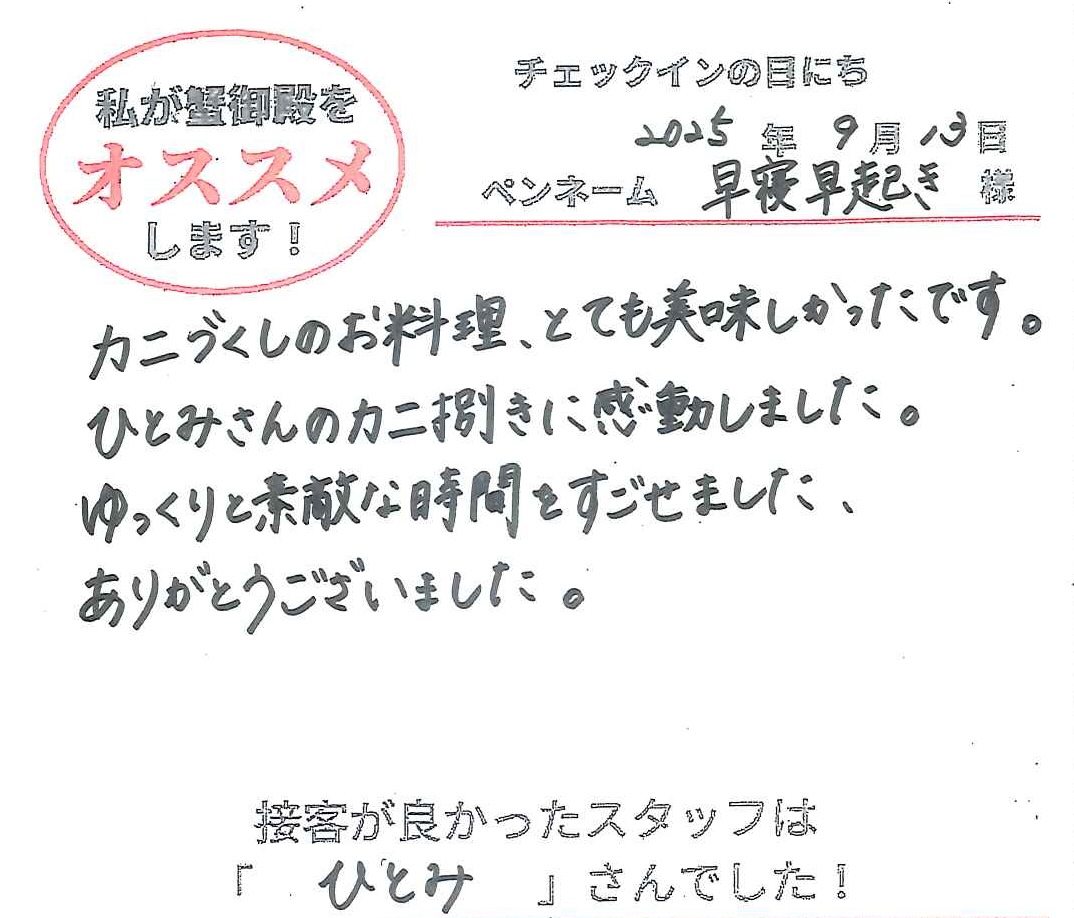 私が蟹御殿を
オススメ
します！
チェックインの日にち
2025年9月13日
ペンネーム 早寝早起き 様
カニづくしのお料理、とても美味しかったです。
ひとみさんのカニ捌きに感動しました。
ゆっくりと素敵な時間をすごせました、
ありがとうございました。
接客が良かったスタッフは
「 ひとみ 」さんでした！